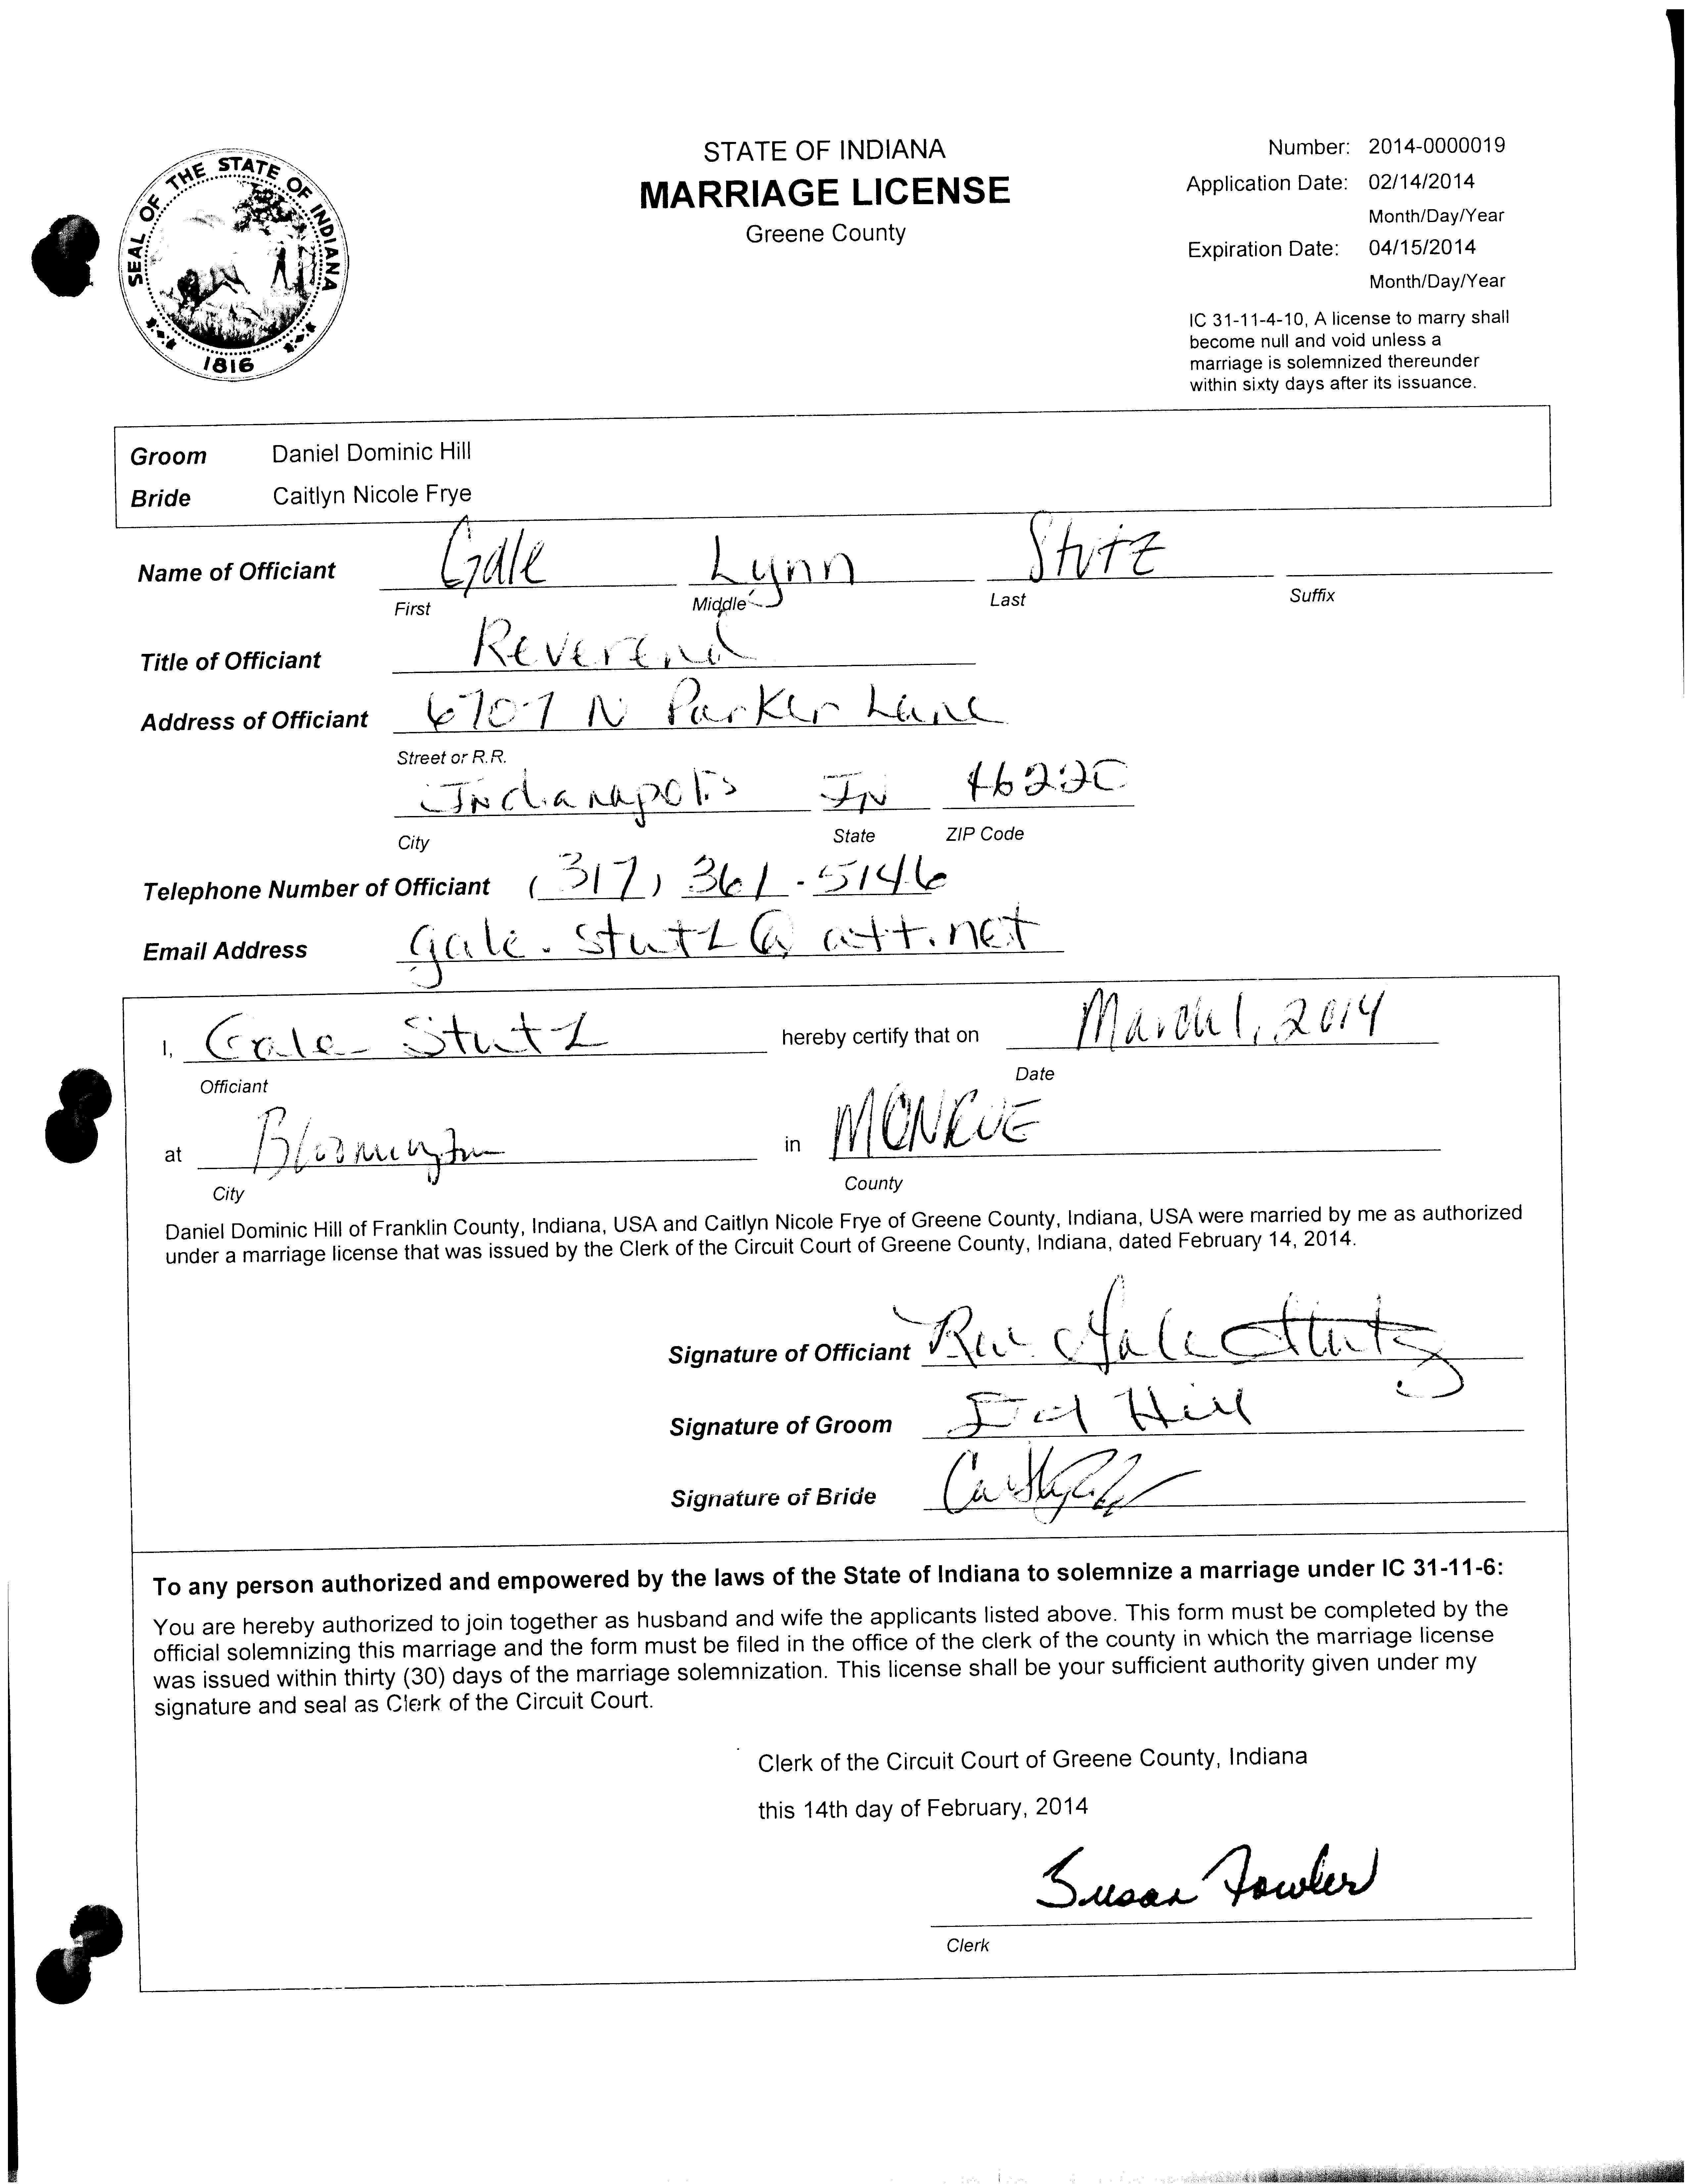 SEAL OF THE STATE OF INDIANA
1816
STATE OF INDIANA
MARRIAGE LICENSE
Greene County
Number: 2014-0000019
Application Date: 02/14/2014
Month/Day/Year
Expiration Date: 04/15/2014
Month/Day/Year
IC 31-11-4-10, A license to marry shall
become null and void unless a
marriage is solemnized thereunder
within sixty days after its issuance.
Groom Daniel Dominic Hill
Bride Caitlyn Nicole Frye
Name of Officiant Gale Lynn Stutz
First Middle Last Suffix
Title of Officiant Reverend
Address of Officiant 6707 N Parker Lane
Street or R.R.
Indianapolis IN 46220
City State ZIP Code
Telephone Number of Officiant (317) 361-5146
Email Address gale.stutz@att.net
I, Gale Stutz hereby certify that on March 1, 2014
Officiant Date
at Bloomington in MONROE
City County
Daniel Dominic Hill of Franklin County, Indiana, USA and Caitlyn Nicole Frye of Greene County, Indiana, USA were married by me as authorized
under a marriage license that was issued by the Clerk of the Circuit Court of Greene County, Indiana, dated February 14, 2014.
Signature of Officiant Rev. Gale Stutz
Signature of Groom Hill
Signature of Bride
To any person authorized and empowered by the laws of the State of Indiana to solemnize a marriage under IC 31-11-6:
You are hereby authorized to join together as husband and wife the applicants listed above. This form must be completed by the
official solemnizing this marriage and the form must be filed in the office of the clerk of the county in which the marriage license
was issued within thirty (30) days of the marriage solemnization. This license shall be your sufficient authority given under my
signature and seal as Clerk of the Circuit Court.
Clerk of the Circuit Court of Greene County, Indiana
this 14th day of February, 2014
Susan Fowler
Clerk